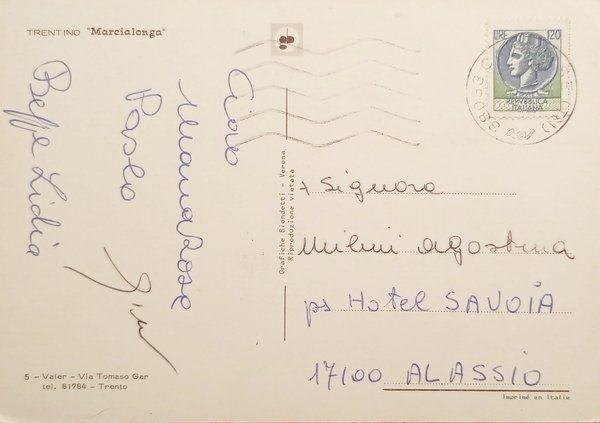 TRENTINO "Marcialonga"
Ciao
Mariarosa
Paolo
Beppe Lidia
5 - Valer - Via Tomaso Gar
tel. 81784 - Trento
Grafiche Biondetti - Verona
Riproduzione vietata
LIRE 120
REPVBBLICA
ITALIANA
38033 C
(TN)
Signora
Milini Agostina
ps Hotel SAVOIA
17100 ALASSIO
Imprimé en Italie